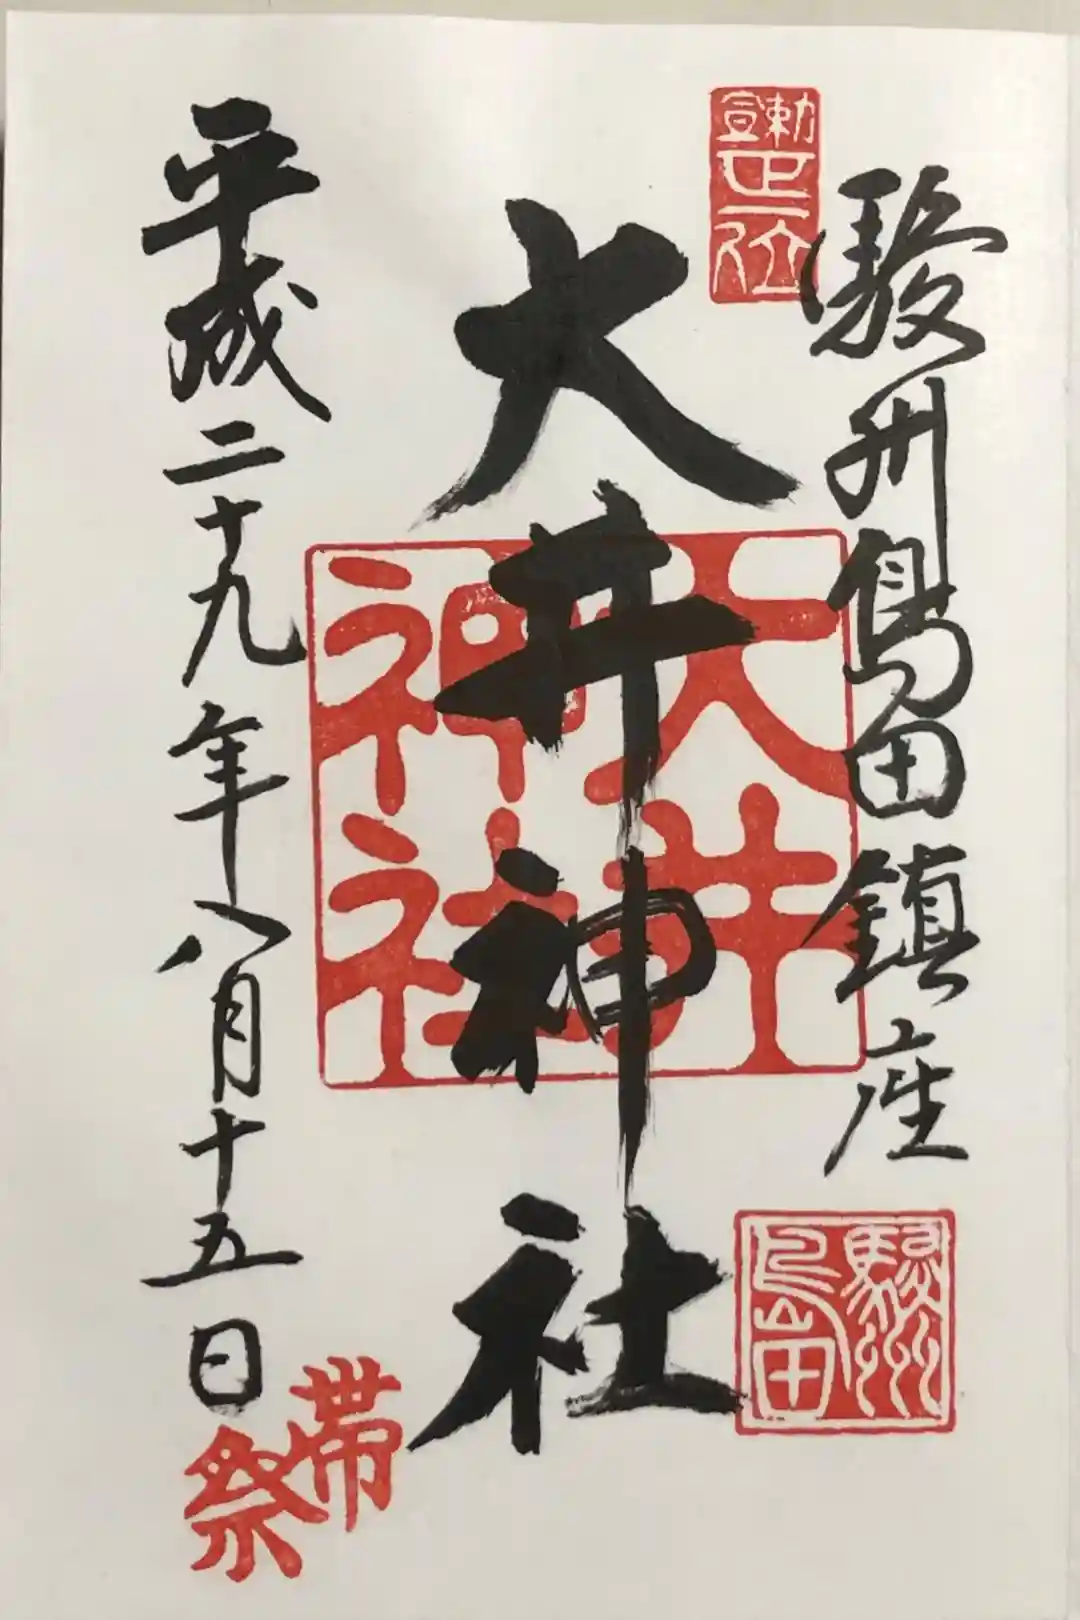 駿州島田鎮座
勅宣
正一位
駿州
島田
大井神社
大井
神社
平成二十九年八月十五日
帯
祭